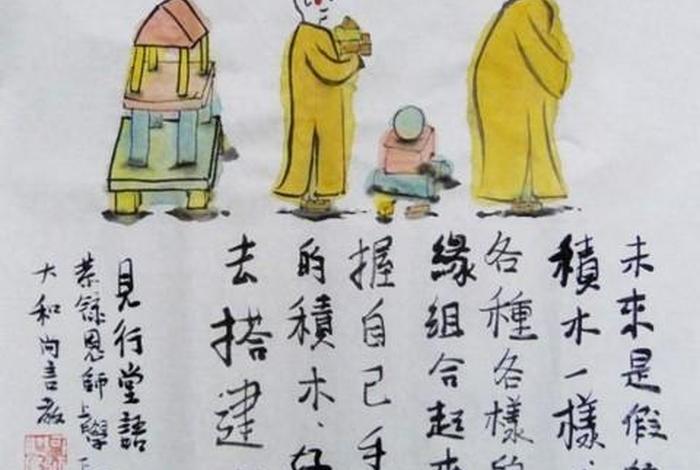 未來是假
積木一樣，
各種各樣的
緣組合起來
握自己手
的積木，好
去搭建
見行堂語
恭錄恩師上學下
大和尚言教